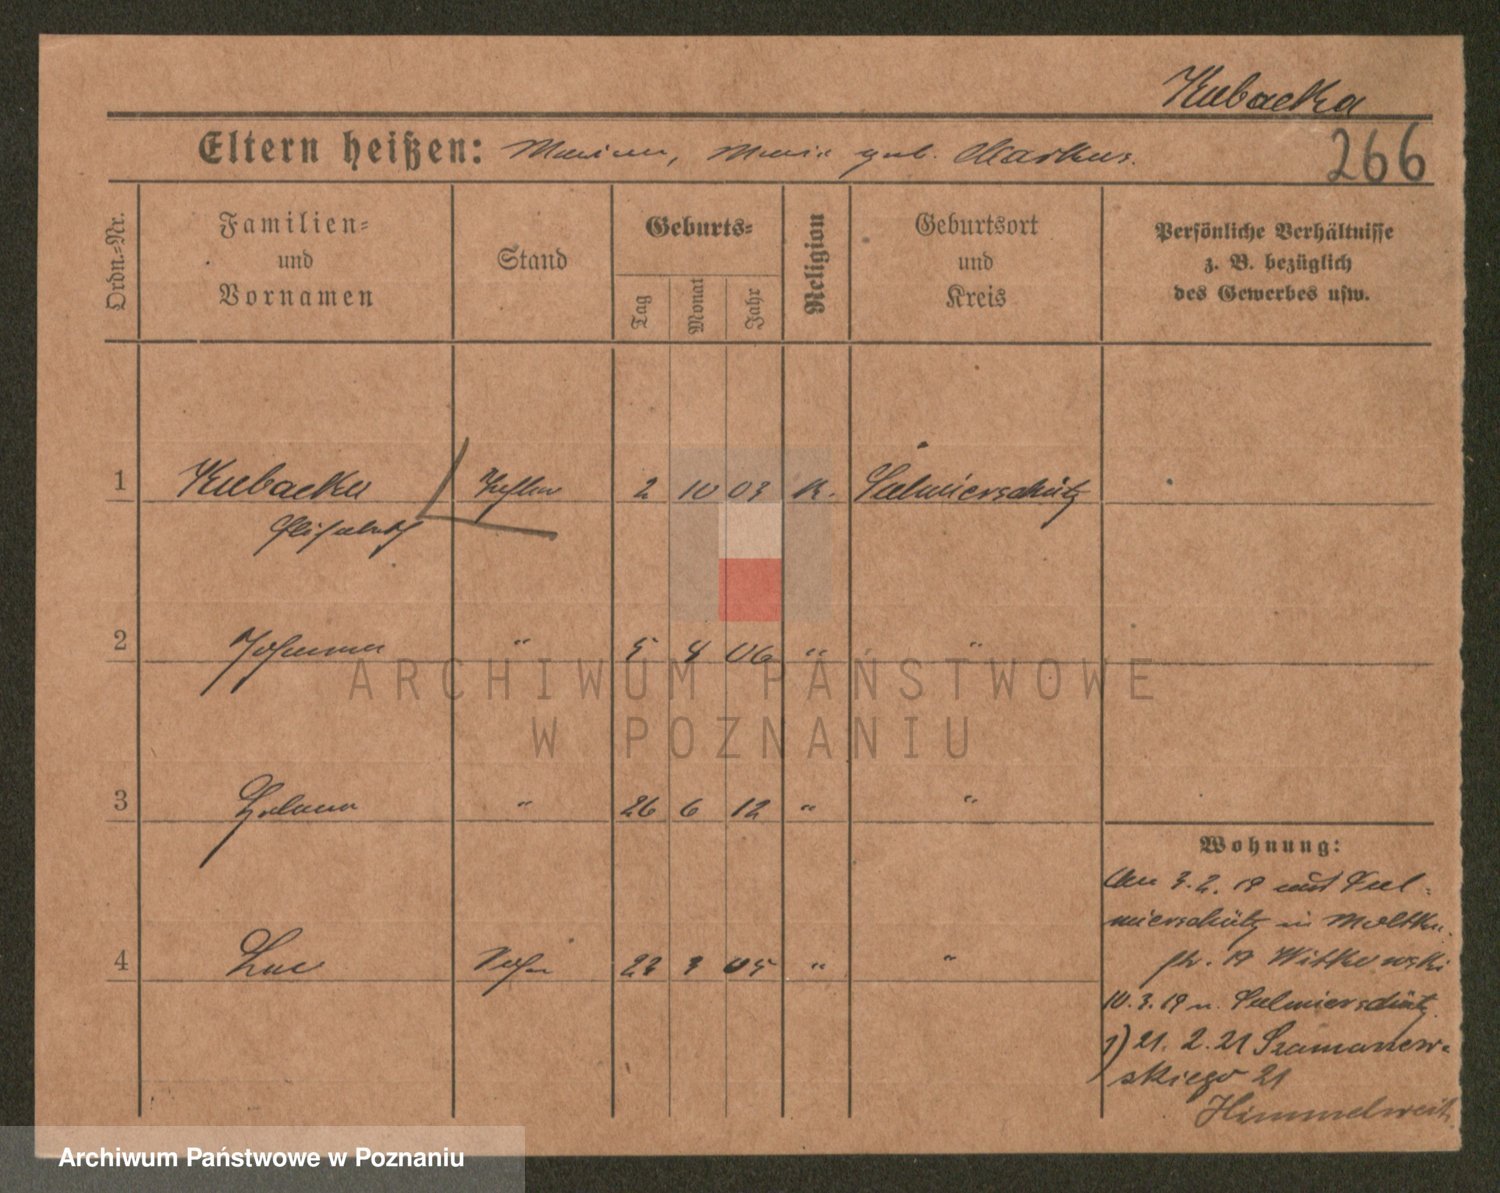 Kubacka
Eltern heißen: Marian, Marie geb. Markus.
266
Ordn.-Nr.
Familien-
und
Vornamen
Stand
Geburts-
Tag
Monat
Jahr
Religion
Geburtsort
und
Kreis
Persönliche Verhältnisse
z. B. bezüglich
des Gewerbes usw.
1 Kubacka Tochter 2 10 03 K. Sulmierschütz
Elisabeth
2 Johanna " 5 4 06 " "
3 Helena " 26 6 12 " "
4 Leo Sohn 23 3 05 " "
Wohnung:
3.2.19 aus Sul-
mierschütz in Moltke-
str. 19 Witkowski
10.3.19 n. Sulmierschütz
1) 21.2.21 Szamarzew-
skiego 21
Himmelweit
ARCHIWUM PAŃSTWOWE
W POZNANIU
Archiwum Państwowe w Poznaniu